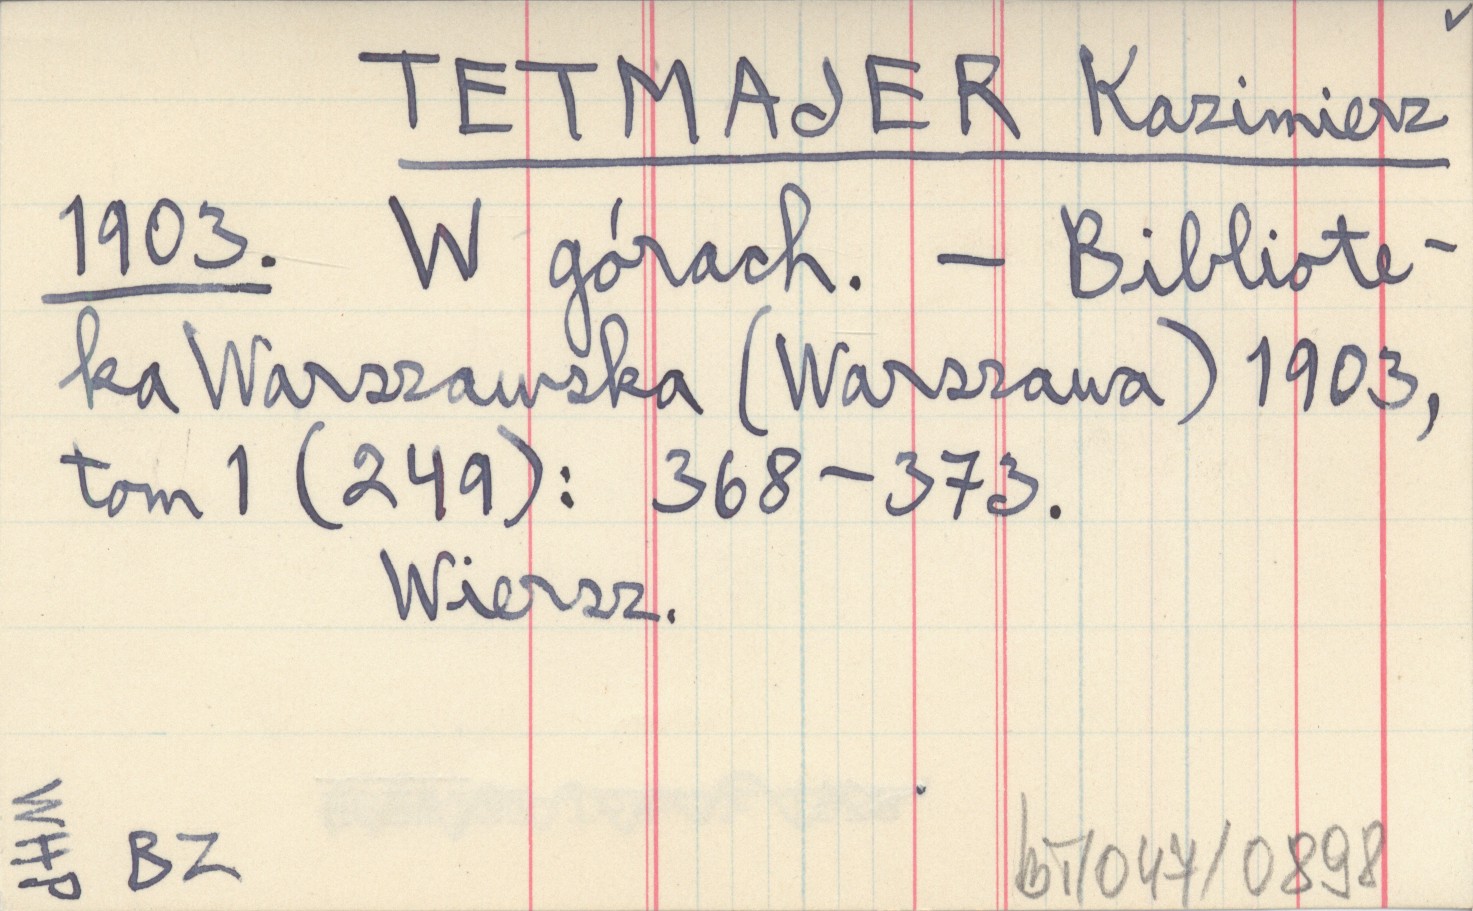 TETMAJER Kazimierz
1903. W górach. – Bibliote-
ka Warszawska (Warszawa) 1903,
tom 1 (249): 368–373.
Wiersz.
WHP
BZ
bT/047/0898